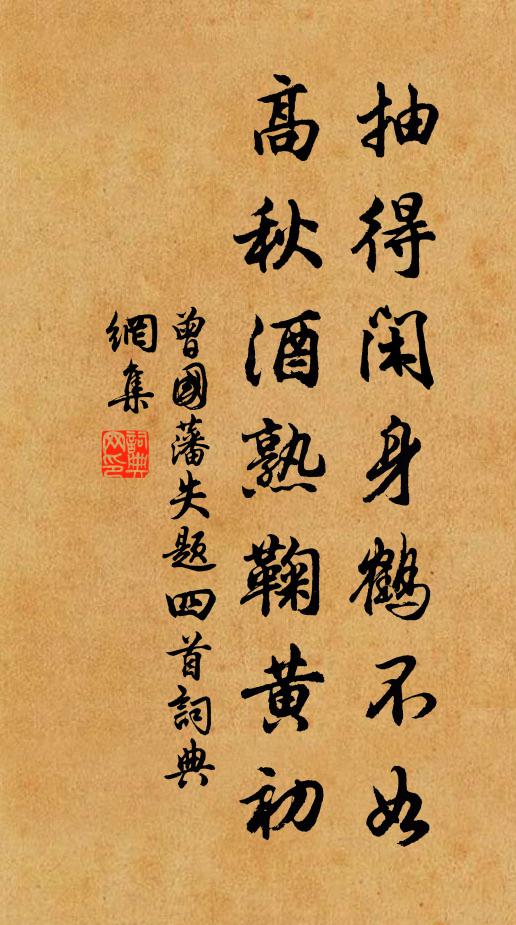 抽得闲身鹤不如
高秋酒熟鞠黄初
曾國藩失题四首詞典
網集
詞典
网印